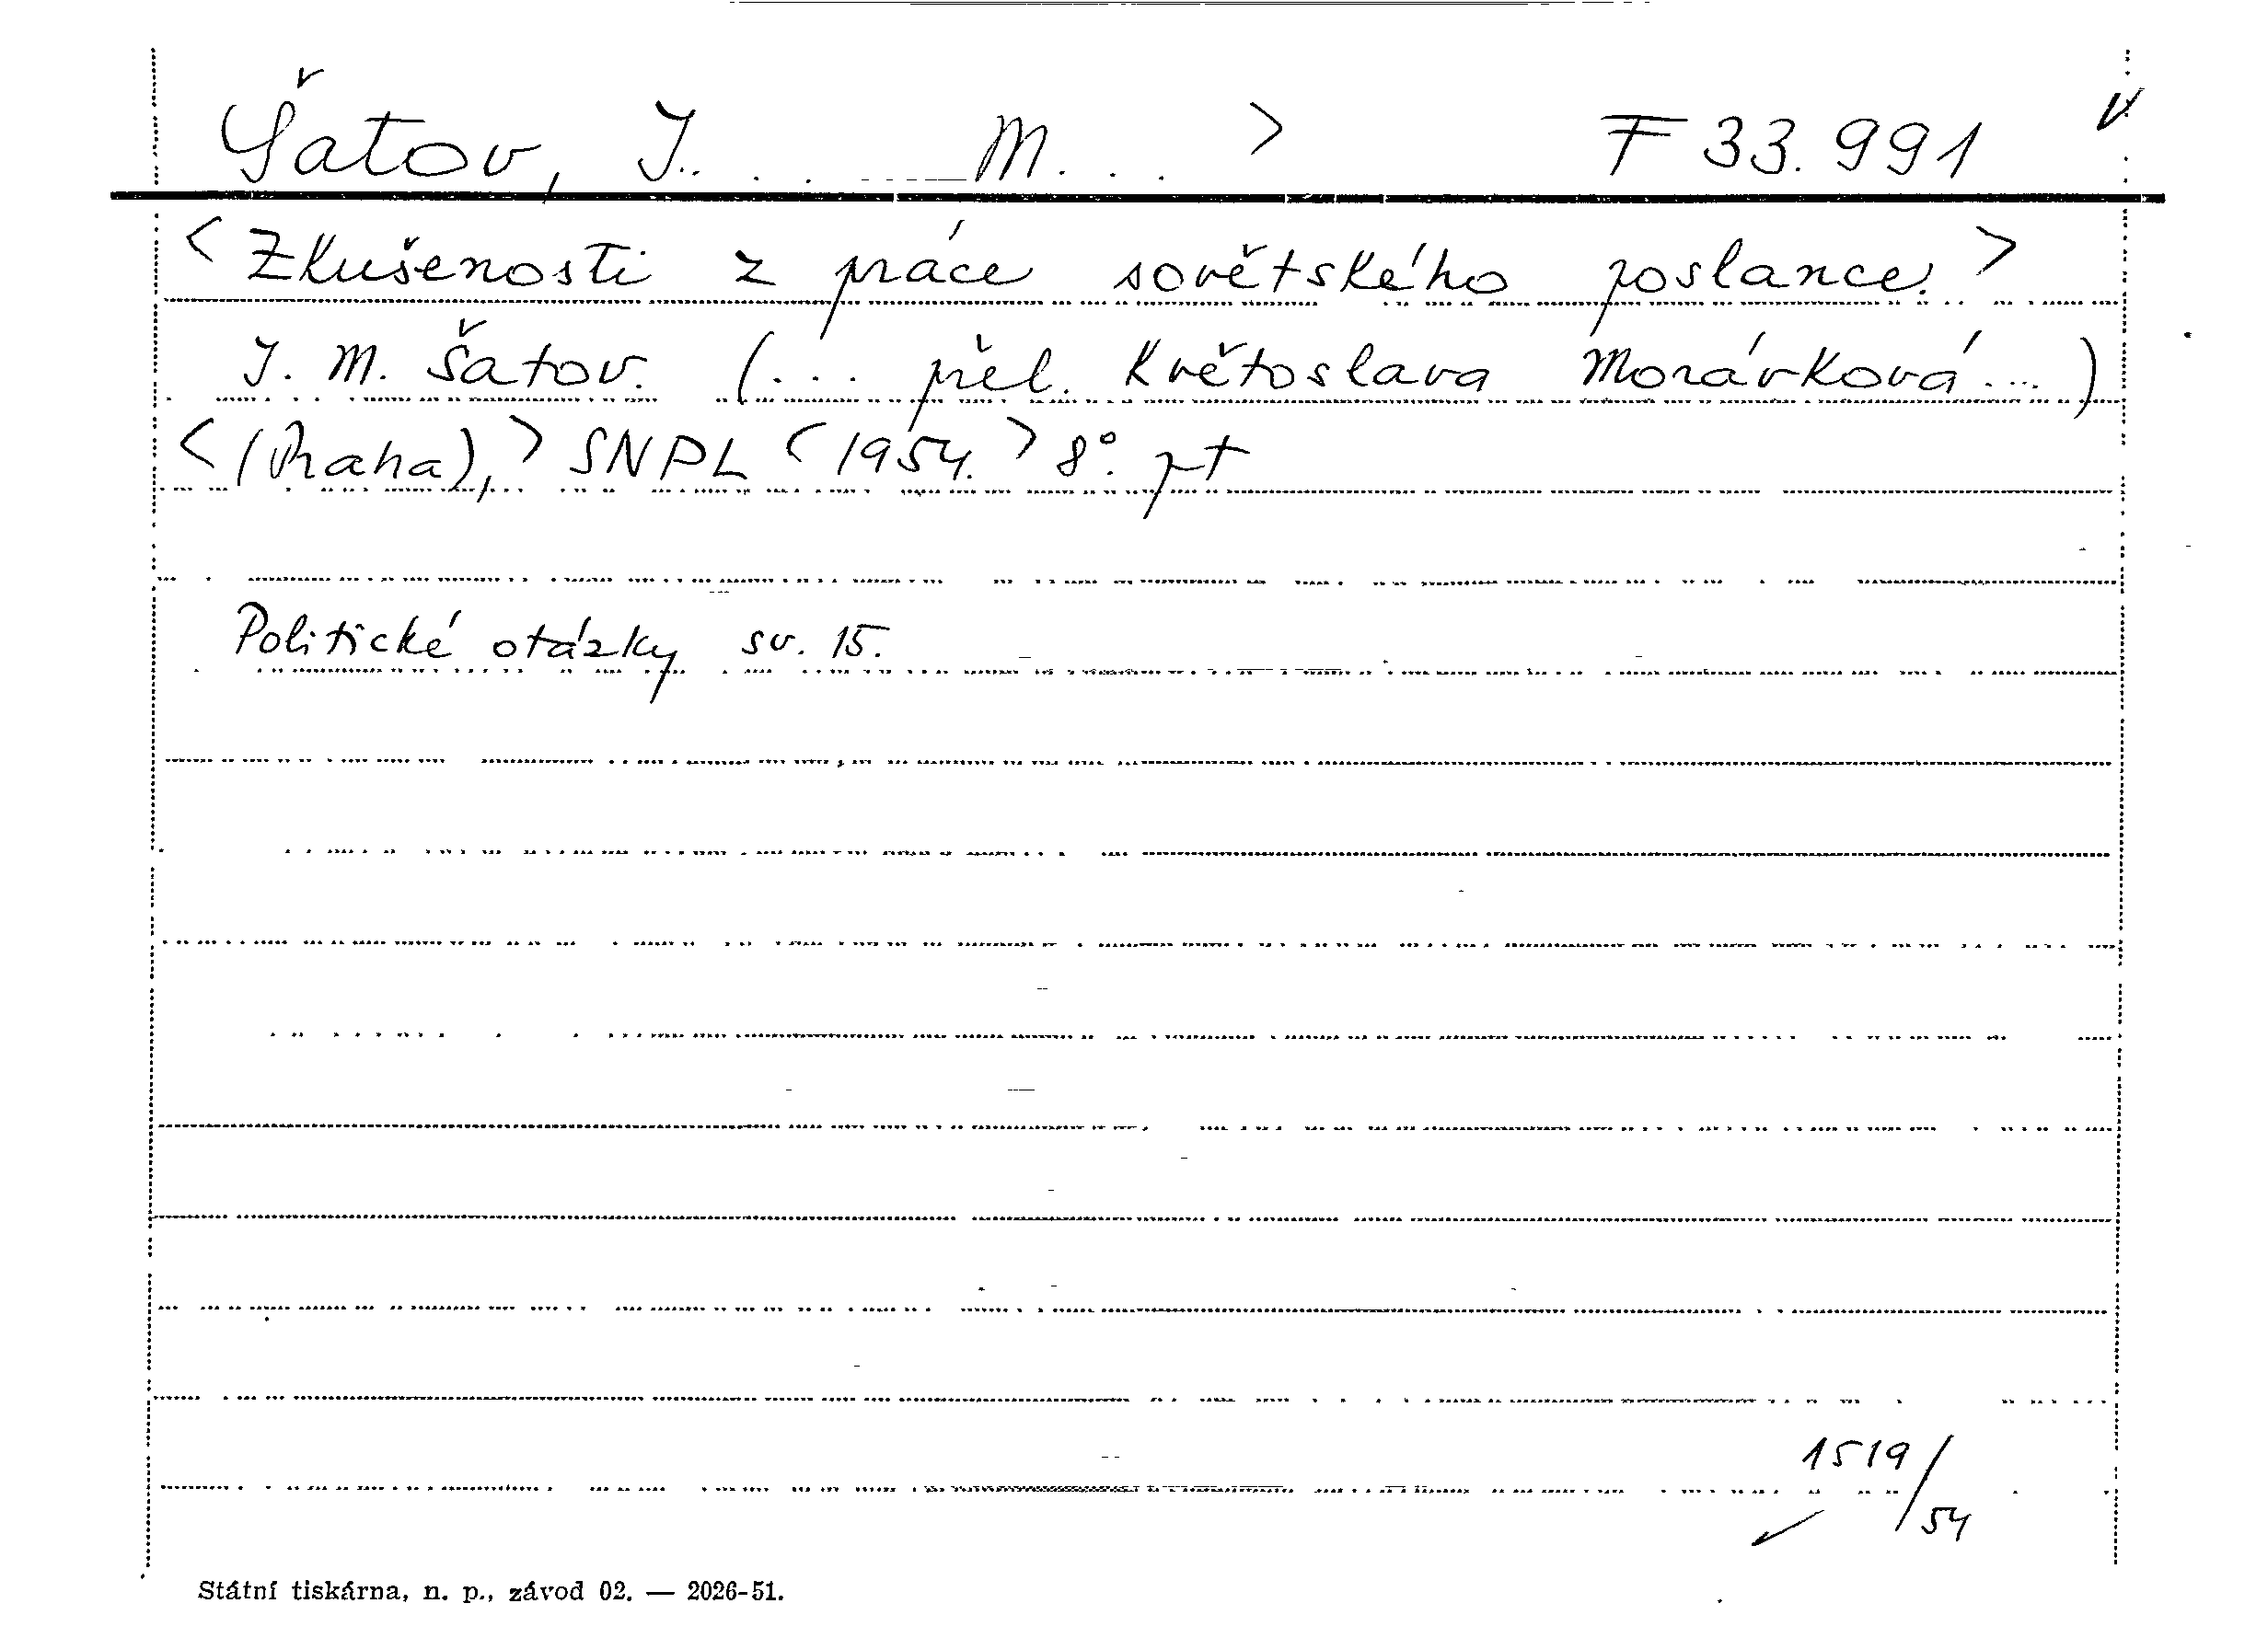 Šatov, J... M... > F 33.991
<Zkušenosti z práce sovětského poslance.>
J. M. Šatov. (... přel. Květoslava Morávková...)
<(Praha),> SNPL <1954.> 8°. pt
Politické otázky sv. 15.
1519/54
Státní tiskárna, n. p., závod 02. — 2026-51.